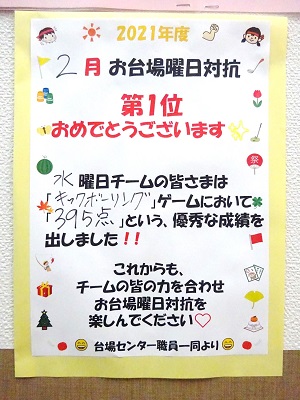 2021年度
2月 お台場曜日対抗
第1位
おめでとうございます
水 曜日チームの皆さまは
「キックボーリング」ゲームにおいて
「395点」という、優秀な成績を
出しました!!
これからも、
チームの皆の力を合わせ
お台場曜日対抗を
楽しんでください♡
台場センター職員一同より
祭